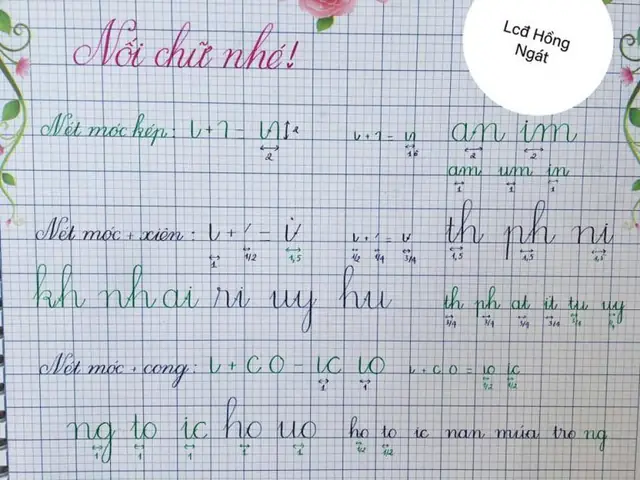 Lcđ Hồng
Ngát
Nối chữ nhé!
Nét móc kép:
2
2
1,5
an im
2 2
am um in
1 1 1
Nét móc + xiên:
1 1/2 1,5
1/2 1/4 3/4
th ph ni
1,5 1,5 1,5
kh nh ai ri uy hu
th ph at it tu uy
3/4 3/4 3/4 3/4 3/4
Nét móc + cong:
1 1
1/2 1/2
ng to ic ho uo
1 1 1 1 1
ho to ic nan múa tro ng
1/2 1/2